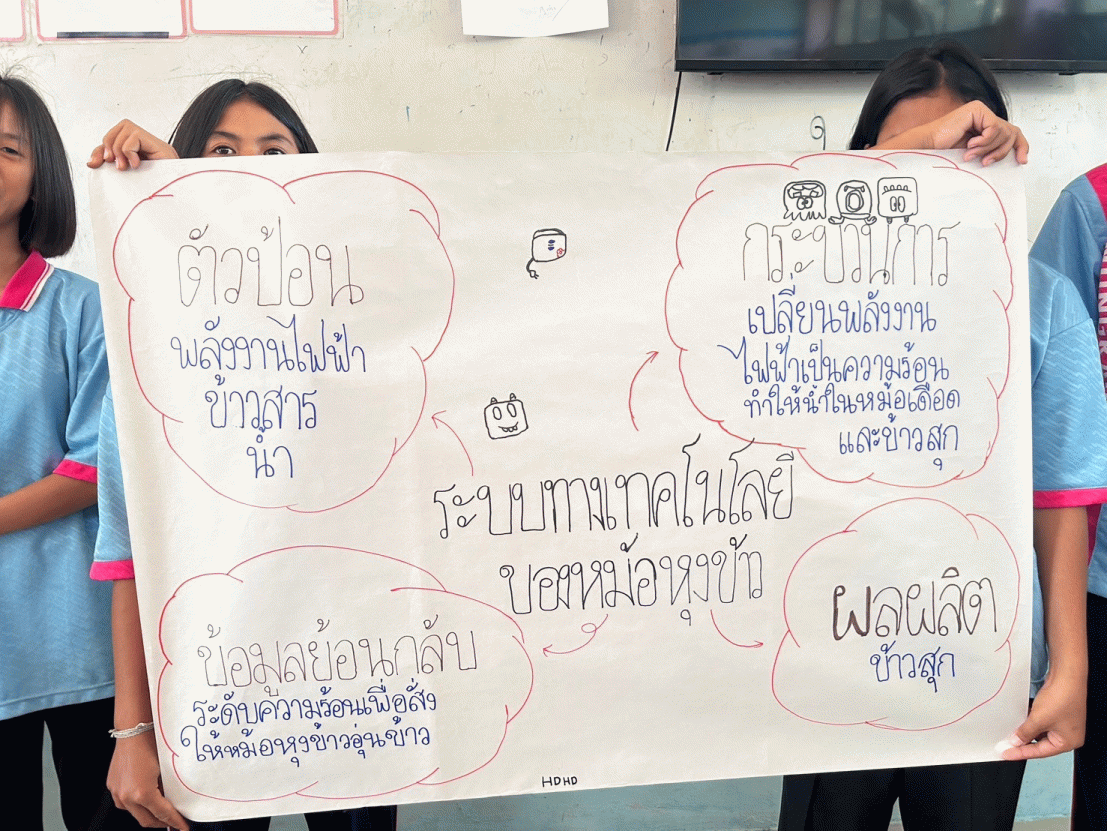 ตัวป้อน
พลังงานไฟฟ้า
ข้าวสาร
น้ำ
กระบวนการ
เปลี่ยนพลังงาน
ไฟฟ้าเป็นความร้อน
ทำให้น้ำในหม้อเดือด
และข้าวสุก
ระบบทางเทคโนโลยี
ของหม้อหุงข้าว
ข้อมูลย้อนกลับ
ระดับความร้อนเพื่อสั่ง
ให้หม้อหุงข้าวอุ่นข้าว
ผลผลิต
ข้าวสุก
HDHD